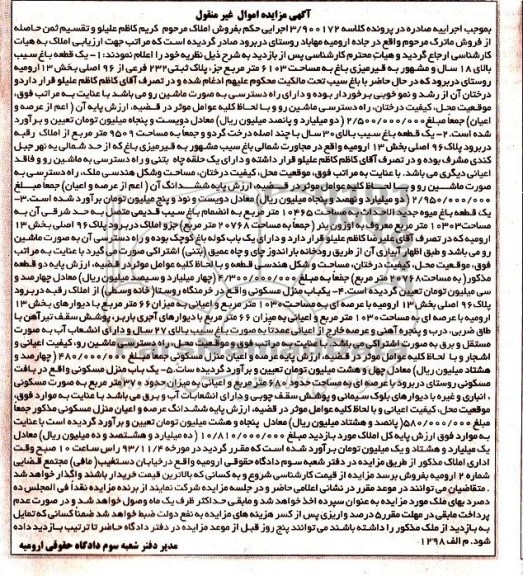 آگهی مزایده اموال غیر منقول
بموجب اجراییه صادره در پرونده کلاسه ۳/۹۰۰۱۷۲ اجرایی حکم بفروش املاک مرحوم کریم کاظم علیلو و تقسیم ثمن حاصله
از فروش ماترک مرحوم واقع در جاده ارومیه مهاباد روستای دربرود صادر گردیده است که مراتب جهت ارزیابی املاک به هیات
کارشناسی ارجاع گردید و هیات محترم کارشناسی پس از بازدید به شرح ذیل نظریه خود را اعلام نمودند: ۱- یک قطعه باغ سیب
بالای ۱۸ سال و مشهور به قیرمیزی باغ به مساحت ۶۱۰۳ متر مربع جزء پلاک ثبتی ۲۳۲ فرعی از ۹۶ اصلی بخش ۱۳ ارومیه
روستای دربرود که در حال حاضر با باغ سیب تحت مالکیت محکوم علیهم ادغام شده و در تصرف آقای کاظم کاظم علیلو قرار دارد و
درختان آن از رشد و نمو خوبی برخوردار بوده و دارای راه دسترسی به صورت ماشین رو می باشد با عنایت به مراتب فوق،
موقعیت محل، کیفیت درختان، راه دسترسی ماشین رو و با لحاظ کلیه عوامل موثر در قضیه، ارزش پایه آن (اعم از عرصه و
اعیان) جمعاً مبلغ ۲/۵۰۰/۰۰۰/۰۰۰ (دو میلیارد و پانصد میلیون ریال) معادل دویست و پنجاه میلیون تومان تعیین و برآورد
شده است. ۲- یک قطعه باغ سیب بالای ۳۰ سال با چند اصله درخت گردو و جمعاً به مساحت ۹۵۰۹ متر مربع از املاک رقبه
دربرود پلاک ۹۶ اصلی بخش ۱۳ ارومیه واقع در مجاورت شمالی باغ سیب مشهور به قیرمیزی باغ که از حد شمالی به نهر جبل
کندی مشرف بوده و در تصرف آقای کاظم کاظم علیلو قرار داشته و دارای یک حلقه چاه بتنی و راه دسترسی به ماشین رو و فاقد
اعیانی دیگری می باشد. با عنایت به مراتب فوق، موقعیت محل، کیفیت درختان، مساحت وشکل هندسی ملک، راه دسترسی به
صورت ماشین رو و با لحاظ کلیه عوامل موثر در قضیه، ارزش پایه ششدانگ آن (اعم از عرصه و اعیان) جمعاً مبلغ
۲/۹۵۰/۰۰۰/۰۰۰ (دو میلیارد و نهصد و پنجاه میلیون ریال) معادل دویست و نود و پنج میلیون تومان برآورد شده است. ۳-
یک قطعه باغ میوه جدید به مساحت ۱۰۴۶۵ متر مربع به انضمام باغ سیب قدیمی متصل به حد شرقی آن به
مساحت ۱۰۳۰۳ متر مربع معروف به اوزون بنر (جمعاً به مساحت ۲۰۷۶۸ متر مربع) جزو املاک دربرود پلاک ۹۶ اصلی بخش ۱۳
ارومیه که در تصرف آقای علیرضا کاظم علیلو قرار دارد و دارای یک باب کوله باغ کوچک بوده و راه دسترسی آن به صورت ماشین
رو می باشد و طبق اظهار آبیاری آن از طریق رودخانه باراندوز چای و چاه عمیق (بتنی) اشتراکی صورت می گیرد با عنایت به مراتب
فوق، موقعیت محل، کیفیت درختان، مساحت و شکل هندسی قطعه و با لحاظ کلیه عوامل موثر در قضیه، ارزش پایه دو قطعه
مذکور (به مساحت ۲۰۷۶۸ متر مربع) جمعاً به مبلغ ۴/۳۰۰/۰۰۰/۰۰۰ ریال (چهار میلیارد و سیصد میلیون ریال) معادل چهارصد و
سی میلیون تومان تعیین گردیده است. ۴- یکباب منزل مسکونی واقع در درمنگاه روستا (خانه وسطی) از املاک رقبه دربرود
پلاک ۹۶ اصلی بخش ۱۳ ارومیه با عرصه ای به مساحت ۱۰۳۰ متر مربع و اعیانی به میزان ۶۶ متر مربع با دیوارهای بخش ۱۳
ارومیه با عرصه ای به مساحت ۱۰۳۰ متر مربع و اعیانی به میزان ۶۶ متر مربع با دیوارهای آجری باربر، پوشش سقف تیرآهن با
طاق ضربی، درب و پنجره آهنی و عرصه خارج از اعیانی عمدتاً به صورت باغ سیب بالای ۲۷ سال و دارای انشعاب آب به صورت
مستقل و برق به صورت اشتراکی می باشد با عنایت به مراتب فوق و موقعیت محل، راه دسترسی ماشین رو، کیفیت اعیانی و
اشجار و با لحاظ کلیه عوامل موثر در قضیه، ارزش پایه عرصه و اعیان منزل مسکونی جمعاً مبلغ ۴۸۰/۰۰۰/۰۰۰ (چهارصد و
هشتاد میلیون ریال) معادل چهل و هشت میلیون تومان تعیین و برآورد گردیده سات. ۵- یک باب منزل مسکونی واقع در بافت
مسکونی روستای دربرود با عرصه ای به مساحت حدود ۶۸۰ متر مربع و اعیانی به میزان حدود ۲۷۰ متر مربع به صورت مسکونی
، انباری و غیره با دیوارهای بلوک سیمانی و پوشش سقف چوبی و دارای انشعابات آب و برق می باشد با عنایت به موارد فوق،
موقعیت محل، کیفیت اعیانی و با لحاظ کلیه عوامل موثر در قضیه، ارزش پایه ششدانگ عرصه و اعیان منزل مسکونی مذکور جمعاً
مبلغ ۵۸۰/۰۰۰/۰۰۰ (پانصد و هشتاد میلیون ریال) معادل پنجاه و هشت میلیون تومان تعیین و برآورد گردیده است با عنایت
به موارد فوق ارزش پایه کل املاک مورد بازدید مبلغ ۱۰/۸۱۰/۰۰۰/۰۰۰ (ده میلیارد و هشتصد و ده میلیون ریال) معادل
یک میلیارد و هشتاد و یک میلیون تومان برآورد شده است که مقرر گردید در مورخه ۹۳/۱۱/۴ راس ساعت ۱۰ صبح وقت
اداری املاک مذکور از طریق مزایده در دفتر شعبه سوم دادگاه حقوقی ارومیه واقع در خیابان دستغیب (مافی) مجتمع قضایی
شماره ۲ ارومیه بفروش برسد مزایده از قیمت کارشناسی شروع و به کسانی که بالاترین قیمت خریدار باشند واگذار خواهد شد
. متقاضیان می توانند در موعد مقرر در نشانی اعلامی حاضر و در جلسه مزایده شرکت نمایند از برنده مزایده نقداً فی المجلس ده
درصد بهای ملک مورد مزایده به عنوان سپرده اخذ خواهد شد و مابقی حداکثر ظرف یک ماه وصول خواهد شد و در صورت عدم
پرداخت مابقی در مهلت مقرر ۵ درصد واریزی پس از کسر هزینه های مزایده به نفع دولت ضبط خواهد شد ضمناً کسانی که تمایل
به بازدید از ملک مذکور را داشته باشند می توانند پنج روز قبل از موعد مزایده در دفتر دادگاه حاضر تا ترتیب بازدید داده
شود. م الف ۱۲۹۸
مدیر دفتر شعبه سوم دادگاه حقوقی ارومیه